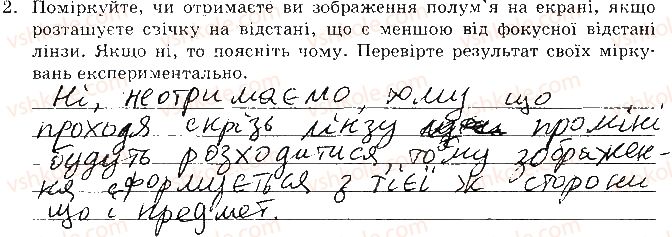 2. Поміркуйте, чи отримаєте ви зображення полум'я на екрані, якщо
розташуєте свічку на відстані, що є меншою від фокусної відстані
лінзи. Якщо ні, то поясніть чому. Перевірте результат своїх мірку-
вань експериментально.
Ні, неотримаємо, тому що
проходя скрізь лінзу проміні
будуть розходитися, тому зображен-
ня сформується з тієї ж сторони
що і предмет.